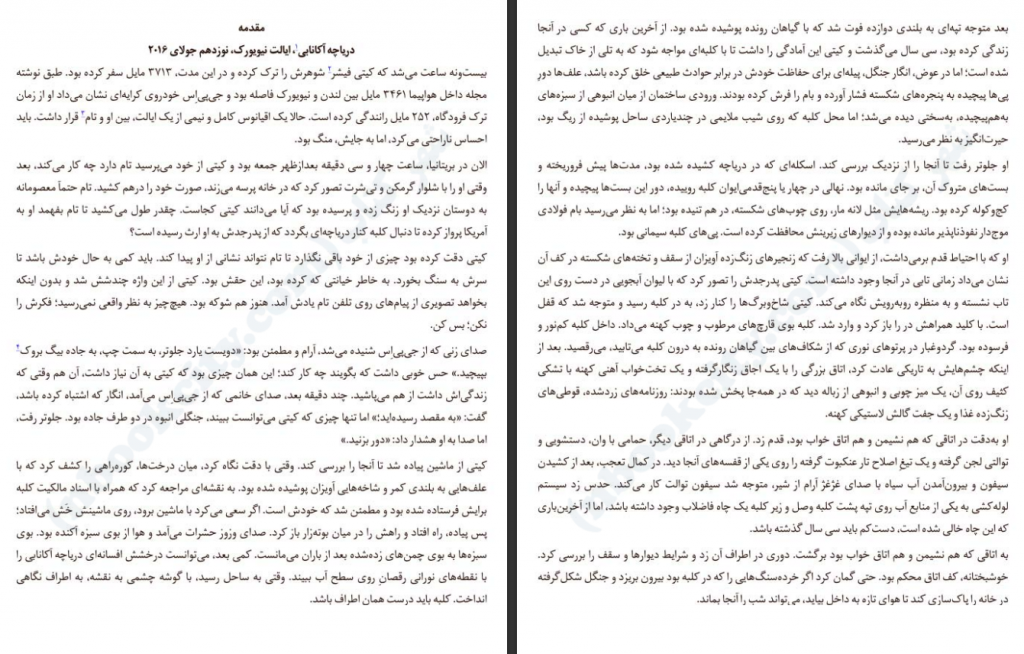 مقدمه
دریاچه آکانابی۱، ایالت نیویورک، نوزدهم جولای ۲۰۱۶
بیست‌ونه ساعت می‌شد که کیتی فیشر۲ شوهرش را ترک کرده و در این مدت، ۳۷۱۳ مایل سفر کرده بود. طبق نوشته
مجله داخل هواپیما ۳۴۶۱ مایل بین لندن و نیویورک فاصله بود و جی‌پی‌اِس خودروی کرایه‌ای نشان می‌داد او از زمان
ترک فرودگاه، ۲۵۲ مایل رانندگی کرده است. حالا یک اقیانوس کامل و نیمی از یک ایالت، بین او و تام۳ قرار داشت. باید
احساس ناراحتی می‌کرد، اما به جایش، منگ بود.
الان در بریتانیا، ساعت چهار و سی دقیقه بعدازظهر جمعه بود و کیتی از خود می‌پرسید تام دارد چه کار می‌کند، بعد
وقتی او را با شلوار گرمکن و تی‌شرت تصور کرد که در خانه پرسه می‌زند، صورت خود را درهم کشید. تام حتماً معصومانه
به دوستان نزدیک او زنگ زده و پرسیده بود که آیا می‌دانند کیتی کجاست. چقدر طول می‌کشید تا تام بفهمد او به
آمریکا پرواز کرده تا دنبال کلبه کنار دریاچه‌ای بگردد که از پدرجدش به او ارث رسیده است؟
کیتی دقت کرده بود چیزی از خود باقی نگذارد تا تام نتواند نشانی از او پیدا کند. باید کمی به حال خودش باشد تا
سرش به سنگ بخورد. به خاطر خیانتی که کرده بود، این حقش بود. کیتی از این واژه چندشش شد و بدون اینکه
بخواهد تصویری از پیام‌های روی تلفن تام یادش آمد. هنوز هم شوکه بود. هیچ‌چیز به نظر واقعی نمی‌رسید؛ فکرش را
نکن؛ بس کن.
صدای زنی که از جی‌پی‌اِس شنیده می‌شد، آرام و مطمئن بود: «دویست یارد جلوتر، به سمت چپ، به جاده بیگ بروک۴
بپیچید.» حس خوبی داشت که بگویند چه کار کند؛ این همان چیزی بود که کیتی به آن نیاز داشت، آن هم وقتی که
زندگی‌اش داشت از هم می‌پاشید. چند دقیقه بعد، صدای خانمی که از جی‌پی‌اِس می‌آمد، انگار که اشتباه کرده باشد،
گفت: «به مقصد رسیده‌اید؛» اما تنها چیزی که کیتی می‌توانست ببیند، جنگلی انبوه در دو طرف جاده بود. جلوتر رفت،
اما صدا به او هشدار داد: «دور بزنید.»
کیتی از ماشین پیاده شد تا آنجا را بررسی کند. وقتی با دقت نگاه کرد، میان درخت‌ها، کوره‌راهی را کشف کرد که با
علف‌هایی به بلندی کمر و شاخه‌هایی آویزان پوشیده شده بود. به نقشه‌ای مراجعه کرد که همراه با اسناد مالکیت کلبه
برایش فرستاده شده بود و مطمئن شد که خودش است. اگر سعی می‌کرد با ماشین برود، روی ماشینش خَش می‌افتاد؛
پس پیاده، راه افتاد و راهش را در میان بوته‌زار باز کرد. صدای وزوز حشرات می‌آمد و هوا از بوی سبزه آکنده بود. بوی
سبزه‌ها به بوی چمن‌های زده‌شده بعد از باران می‌مانست. کمی بعد، می‌توانست درخشش افسانه‌ای دریاچه آکانابی را
با نقطه‌های نورانی رقصانِ روی سطح آب ببیند. وقتی به ساحل رسید، با گوشه چشمی به نقشه، به اطراف نگاهی
انداخت. کلبه باید درست همان اطراف باشد.
بعد متوجه تپه‌ای به بلندی دوازده فوت شد که با گیاهان رونده پوشیده شده بود. از آخرین باری که کسی در آنجا
زندگی کرده بود، سی سال می‌گذشت و کیتی این آمادگی را داشت تا با کلبه‌ای مواجه شود که به تلی از خاک تبدیل
شده است؛ اما در عوض، انگار جنگل، پیله‌ای برای حفاظت خودش در برابر حوادث طبیعی خلق کرده باشد، علف‌ها دور
پی‌ها پیچیده به پنجره‌های شکسته فشار آورده و بام را فرش کرده بودند. ورودی ساختمان از میان انبوهی از سبزه‌های
به‌هم‌پیچیده، به‌سختی دیده می‌شد؛ اما محل کلبه که روی شیب ملایمی در چندیاردی ساحل پوشیده از ریگ بود،
حیرت‌انگیز به نظر می‌رسید.
او جلوتر رفت تا آنجا را از نزدیک بررسی کند. اسکله‌ای که در دریاچه کشیده شده بود، مدت‌ها پیش فروریخته و
بست‌های متروک آن، بر جای مانده بود. نهالی در چهار یا پنج‌قدمی‌ایوان کلبه روییده، دور این بست‌ها پیچیده و آنها را
کج‌وکوله کرده بود. ریشه‌هایش مثل لانه مار، روی چوب‌های شکسته، در هم تنیده بود؛ اما به نظر می‌رسید بام فولادی
موج‌دار نفوذناپذیر مانده بوده و از دیوارهای زیرینش محافظت کرده است. پی‌های کلبه سیمانی بود.
او که با احتیاط قدم برمی‌داشت، از ایوانی بالا رفت که زنجیرهای زنگ‌زده آویزان از سقف و تخته‌های شکسته در کف آن
نشان می‌داد زمانی تابی در آنجا وجود داشته است. کیتی پدرجدش را تصور کرد که با لیوان آبجویی در دست روی این
تاب نشسته و به منظره روبه‌رویش نگاه می‌کند. کیتی شاخ‌وبرگ‌ها را کنار زد، به در کلبه رسید و متوجه شد که قفل
است. با کلید همراهش در را باز کرد و وارد شد. کلبه بوی قارچ‌های مرطوب و چوب کهنه می‌داد. داخل کلبه کم‌نور و
فرسوده بود. گردوغبار در پرتوهای نوری که از شکاف‌های بین گیاهان رونده به درون کلبه می‌تابید، می‌رقصید. بعد از
اینکه چشم‌هایش به تاریکی عادت کرد، اتاق بزرگی را با یک اجاق زنگارگرفته و یک تخت‌خواب آهنی کهنه با تشکی
کثیف روی آن، یک میز چوبی و انبوهی از زباله دید که در همه‌جا پخش شده بودند: روزنامه‌های زردشده، قوطی‌های
زنگ‌زده غذا و یک جفت گالش لاستیکی کهنه.
او به‌دقت در اتاقی که هم نشیمن و هم اتاق خواب بود، قدم زد. از درگاهی در اتاقی دیگر، حمامی با وان، دستشویی و
توالتی لجن گرفته و یک تیغ اصلاح تار عنکبوت گرفته را روی یکی از قفسه‌های آنجا دید. در کمال تعجب، بعد از کشیدن
سیفون و بیرون‌آمدن آب سیاه با صدای غژغژ آرام از شیر، متوجه شد سیفون توالت کار می‌کند. حدس زد سیستم
لوله‌کشی به یکی از منابع آب روی تپه پشت کلبه وصل و زیر کلبه یک چاه فاضلاب وجود داشته باشد، اما از آخرین‌باری
که این چاه خالی شده است، دست‌کم باید سی سال گذشته باشد.
به اتاقی که هم نشیمن و هم اتاق خواب بود برگشت. دوری در اطراف آن زد و شرایط دیوارها و سقف را بررسی کرد.
خوشبختانه، کف اتاق محکم بود. حتی گمان کرد اگر خرده‌سنگ‌هایی را که در کلبه بود بیرون بریزد و جنگل شکل‌گرفته
در خانه را پاک‌سازی کند تا هوای تازه به داخل بیاید، می‌تواند شب را آنجا بماند.